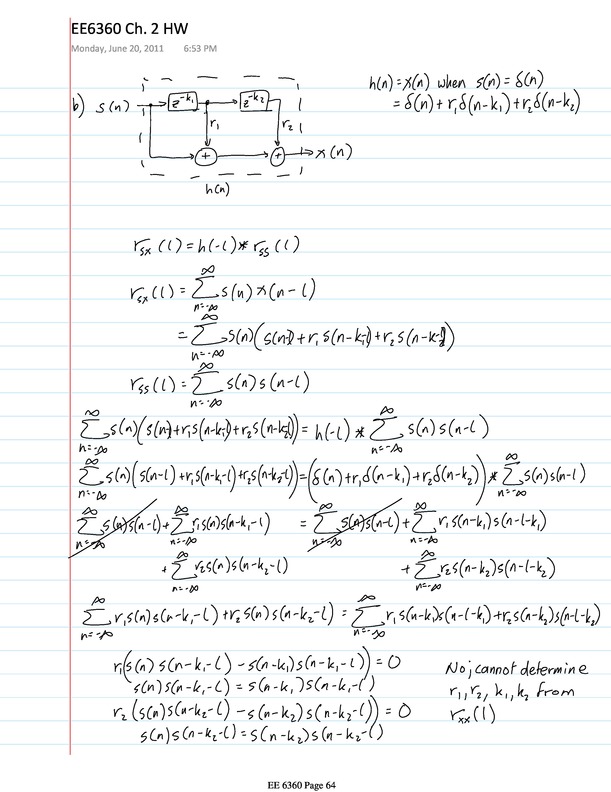 EE6360 Ch. 2 HW
Monday, June 20, 2011 6:53 PM
h(n) = x(n) when s(n) = δ(n)
= δ(n) + r₁δ(n-k₁) + r₂δ(n-k₂)
b) s(n) z^-k₁ z^-k₂
r₁ r₂
+ + x(n)
h(n)
r_sx(l) = h(-l) * r_ss(l)
r_sx(l) = ∑_{n=-∞}^{∞} s(n) x(n-l)
= ∑_{n=-∞}^{∞} s(n)(s(n-l) + r₁s(n-k₁-l) + r₂s(n-k₂-l))
r_ss(l) = ∑_{n=-∞}^{∞} s(n) s(n-l)
∑_{n=-∞}^{∞} s(n)(s(n-l) + r₁s(n-k₁-l) + r₂s(n-k₂-l)) = h(-l) * ∑_{n=-∞}^{∞} s(n) s(n-l)
∑_{n=-∞}^{∞} s(n)(s(n-l) + r₁s(n-k₁-l) + r₂s(n-k₂-l)) = (δ(n) + r₁δ(n-k₁) + r₂δ(n-k₂)) * ∑_{n=-∞}^{∞} s(n)s(n-l)
∑_{n=-∞}^{∞} s(n)s(n-l) + ∑_{n=-∞}^{∞} r₁s(n)s(n-k₁-l) = ∑_{n=-∞}^{∞} s(n)s(n-l) + ∑_{n=-∞}^{∞} r₁s(n-k₁)s(n-l-k₁)
+ ∑_{n=-∞}^{∞} r₂s(n)s(n-k₂-l) + ∑_{n=-∞}^{∞} r₂s(n-k₂)s(n-l-k₂)
∑_{n=-∞}^{∞} r₁s(n)s(n-k₁-l) + r₂s(n)s(n-k₂-l) = ∑_{n=-∞}^{∞} r₁s(n-k₁)s(n-l-k₁) + r₂s(n-k₂)s(n-l-k₂)
r₁(s(n)s(n-k₁-l) - s(n-k₁)s(n-k₁-l)) = 0
s(n)s(n-k₁-l) = s(n-k₁)s(n-k₁-l)
r₂(s(n)s(n-k₂-l) - s(n-k₂)s(n-k₂-l)) = 0
s(n)s(n-k₂-l) = s(n-k₂)s(n-k₂-l)
No; cannot determine
r₁, r₂, k₁, k₂ from
r_xx(l)
EE 6360 Page 64